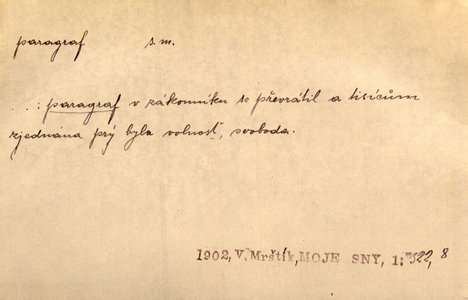 paragraf s. m.
...: paragraf v zákonníku se převrátil a tisícům
zjednána prý byla volnost, svoboda.
1902, V. Mrštík, MOJE SNY, 1: 322, 8